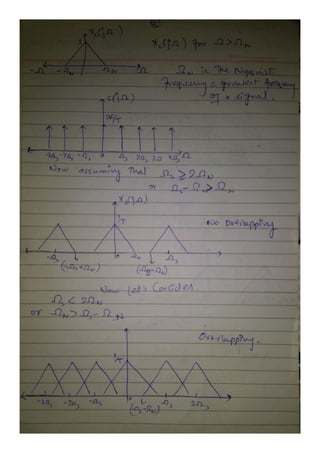 Xc(jΩ)
1
Xc(jΩ) for Ω>ΩN
-Ω -ΩN ΩN Ω
ΩN is the Nyquist
frequency = greatest frequency
of a signal.
S(jΩ)
2π/T
-3Ωs -2Ωs -Ωs 0 Ωs 2Ωs 3Ωs Ω
Now assuming that Ωs ≥ 2ΩN
or Ωs-ΩN > ΩN
Xs(jΩ)
1/T
No overlapping
-Ωs ΩN Ωs
(Ωs-ΩN)
Now Let's Consider.
Ωs < 2ΩN
or ΩN > Ωs-ΩN
Overlapping.
1/T
-3Ωs -2Ωs -Ωs Ωs 2Ωs
(Ωs-ΩN)